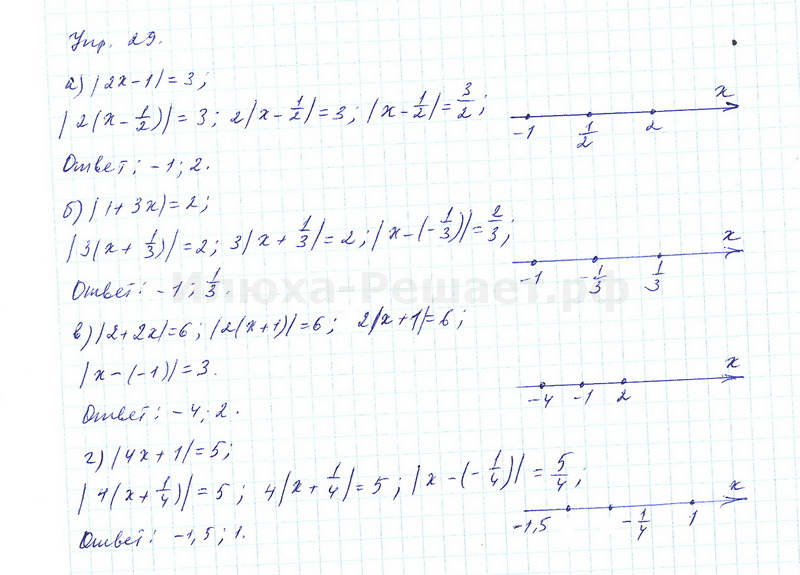 Упр. 29.
а) |2x-1|=3;
|2(x-1/2)|=3; 2|x-1/2|=3; |x-1/2|=3/2;
x
-1 1/2 2
Ответ: -1; 2.
б) |1+3x|=2;
|3(x+1/3)|=2; 3|x+1/3|=2; |x-(-1/3)|=2/3;
x
-1 -1/3 1/3
Ответ: -1; 1/3.
Илюха-Решает.рф
в) |2+2x|=6; |2(x+1)|=6; 2|x+1|=6;
|x-(-1)|=3.
x
-4 -1 2
Ответ: -4; 2.
г) |4x+1|=5;
|4(x+1/4)|=5; 4|x+1/4|=5; |x-(-1/4)|=5/4;
x
-1,5 -1/4 1
Ответ: -1,5; 1.